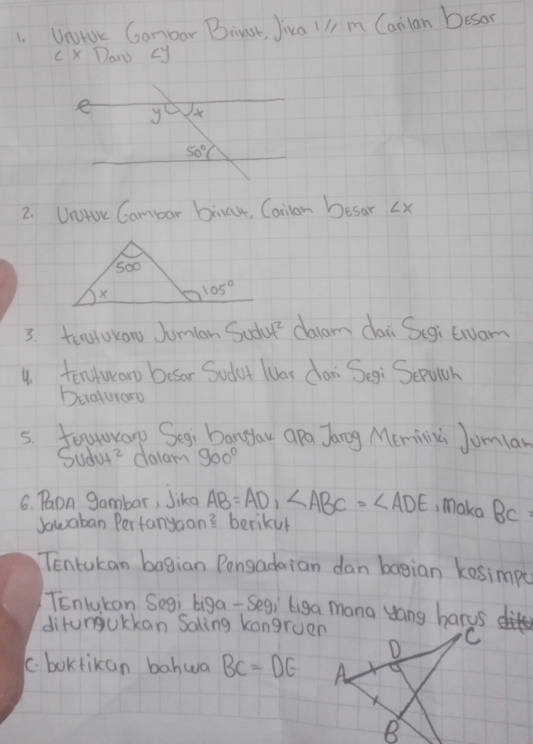 1. Untuk Gambar Brikut, Jika l // m Carilan besar
<x Dano <y
e
y x
50°
2. Untuk Gambar brikut, Carilan besar <x
500
x 105°
3. tentukano Jumlan Sudut² dalam dari Segi Enam
4. tentukano besar Sudut luar dari Segi Sepuluh
beraturano
5. tentukano Segi banyak apa Jang Memiliki Jumlan
Sudut² dalam 900°
6. Pada gambar, Jika AB = AD, <ABC = <ADE, maka BC =
Jawaban Pertanyaan² berikut
Tentukan bagian Pengadaian dan bagian kesimpu
Tentukan Segi tiga - Segi tiga mana yang harus
ditunjukkan Saling kongruen
C. buktikan bahwa BC = DE
A D C
B